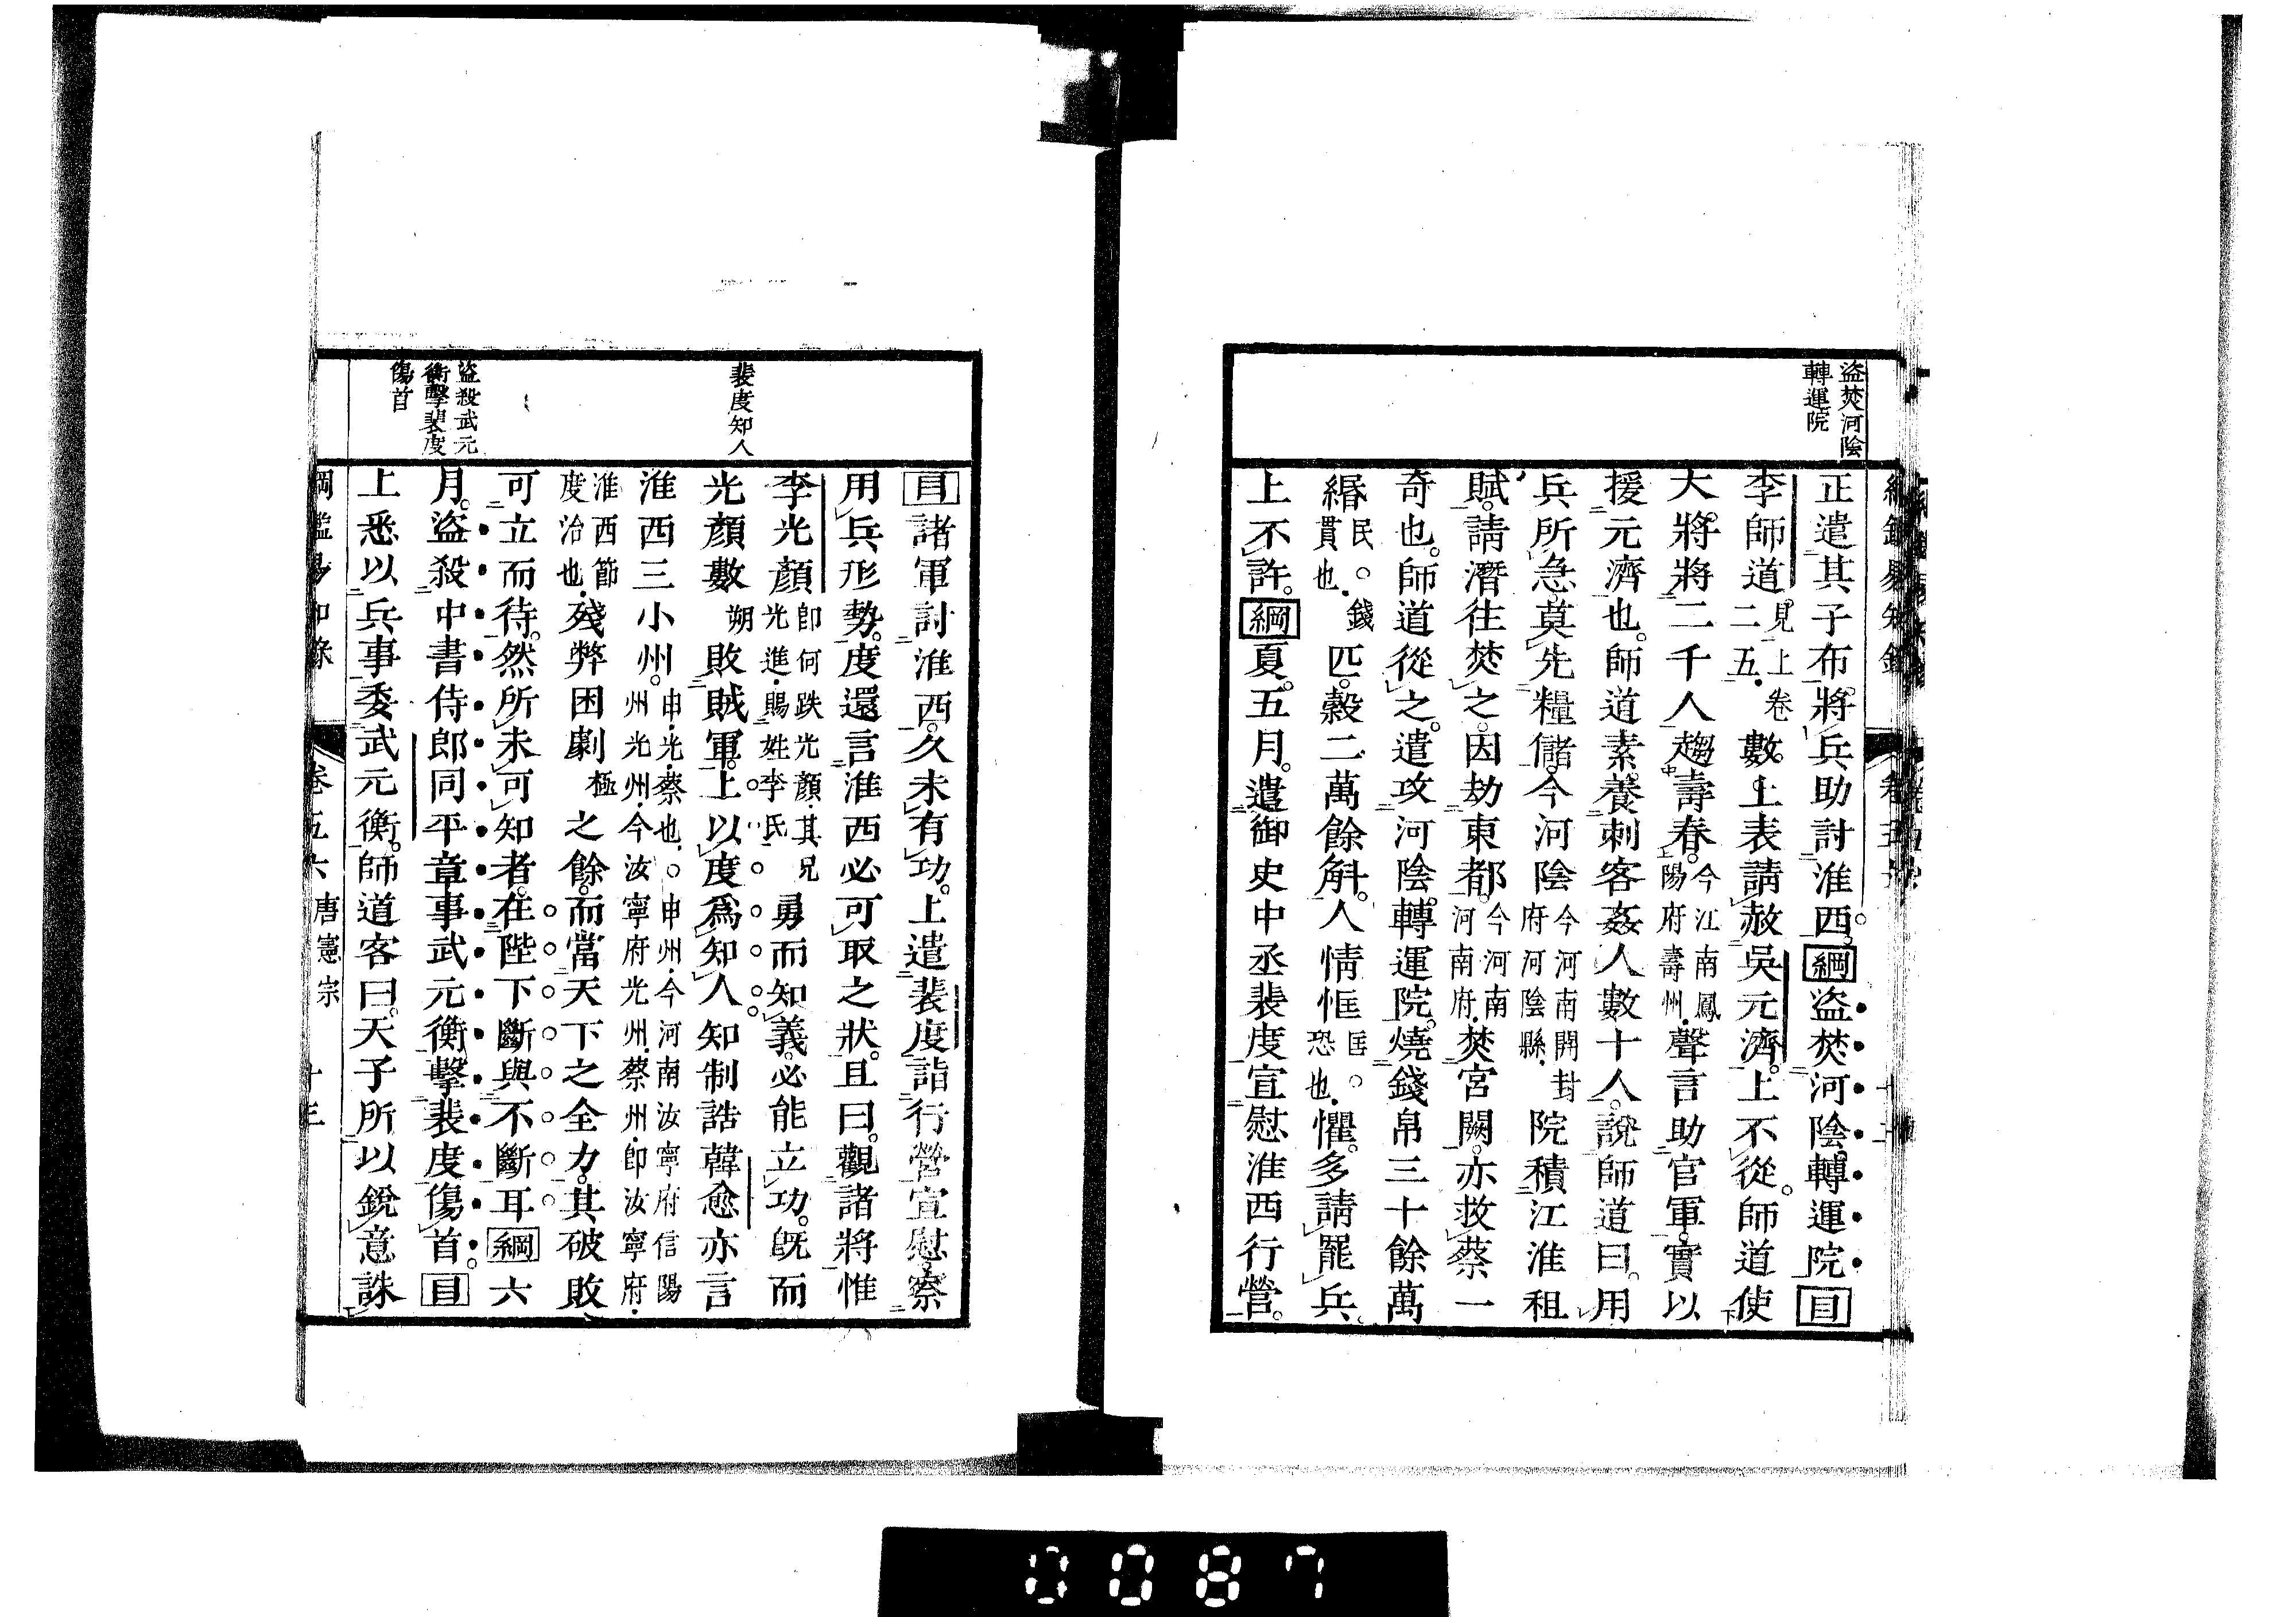 盜焚河陰
轉運院
正遣其子布將兵助討淮西。綱盜焚河陰轉運院目
李師道見上卷二五數上表請赦吳元濟。上不從。師道使
大將將二千人趨壽春。今江南鳳陽府壽州聲言助官軍。實以
援元濟也。師道素養刺客姦人數十人。說師道曰。用
兵所急。莫先糧儲。今河陰今河南開封府河陰縣院積江淮租
賦。請潛往焚之。因劫東都。今河南河南府焚宮闕。亦救蔡一
奇也。師道從之。遣攻河陰轉運院。燒錢帛三十餘萬
緡民。錢貫也匹。穀二萬餘斛。人情恇匡。恐也懼。多請罷兵。
上不許。綱夏。五月。遣御史中丞裴度宣慰淮西行營。
裴度知人
盜殺武元
衡擊裴度
傷首
目諸軍討淮西。久未有功。上遣裴度詣行營宣慰。察
用兵形勢。度還言淮西必可取之狀。且曰。觀諸將惟
李光顏卽何跌光顏其兄光進賜姓李氏勇而知義。必能立功。旣而
光顏數朔敗賊軍。上以度爲知人。知制誥韓愈亦言
淮西三小州。申光蔡也。申州今河南汝寧府信陽州光州今汝寧府光州蔡州卽汝寧府
淮西節度治也殘弊困劇極之餘。而當天下之全力。其破敗
可立而待。然所未可知者。在陛下斷與不斷耳綱六
月。盜殺中書侍郎同平章事武元衡。擊裴度傷首。目
上悉以兵事委武元衡。師道客曰。天子所以銳意誅
綱鑑易知錄 卷五六 唐憲宗 十三
0087